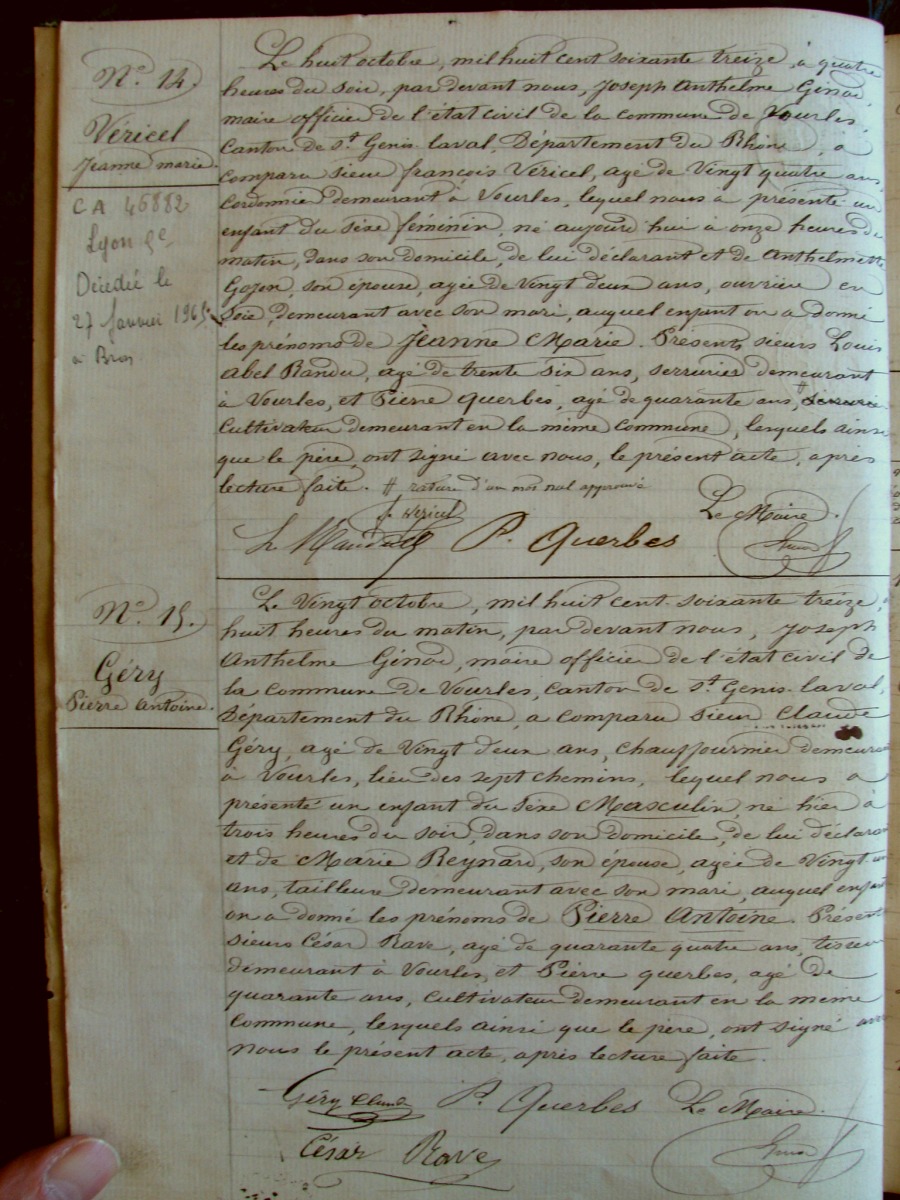 N.o 14.
Véricel
Jeanne marie.
CA 46882
Lyon 5e
Décédée le
27 Janvier 1965
à Bron
Le huit octobre, mil huit cent soixante treize, à quatre
heures du soir, par devant nous, Joseph Anthelme Ginod,
maire officier de l'état civil de la commune de Vourles,
Canton de St Genis laval, Département du Rhône, a
comparu sieur françois Vericel, agé de Vingt quatre ans,
Cordonnier demeurant à Vourles, lequel nous a présenté un
enfant du sèxe féminin, né aujourd'hui à onze heures du
matin, dans son domicile, de lui déclarant et de Anthelmette
Gozon, son épouse, agée de vingt deux ans, ouvrière en
Soie, demeurant avec son mari, auquel enfant on a donné
les prénoms de Jeanne Marie. Présents, sieurs Louis
Abel Randu, agé de trente six ans, serrurier demeurant
à Vourles, et Pierre Querbes, agé de quarante ans, #
Cultivateur demeurant en la même Commune, lesquels ainsi
que le père, ont signé avec nous, le présent acte, après
lecture faite. # rature d'un mot nul approuvé
f. Vericel Le Maire.
P. Querbes
N.o 15.
Géry
Pierre Antoine.
Le Vingt octobre, mil huit cent soixante treize, à
huit heures du matin, par devant nous, Joseph
Anthelme Ginod, maire officier de l'état civil de
la commune de Vourles, canton de St Genis-laval,
Département du Rhône, a comparu Sieur Claude
Géry, agé de Vingt deux ans, Chaufournier demeurant
à Vourles, lieu des sept chemins, lequel nous a
présenté un enfant du sèxe Masculin, né hier à
trois heures du soir, dans son domicile, de lui déclarant
et de Marie Reynard, son épouse, agée de Vingt un
ans, tailleuse demeurant avec son mari, auquel enfant
on a donné les prénoms de Pierre Antoine. Présents
sieurs César Rave, agé de quarante quatre ans, tisseur
demeurant à Vourles, et Pierre querbes, agé de
quarante ans, Cultivateur demeurant en la même
Commune, lesquels ainsi que le père, ont signé avec
nous le présent acte, après lecture faite.
Géry Claude P. Querbes Le Maire.
César Rave